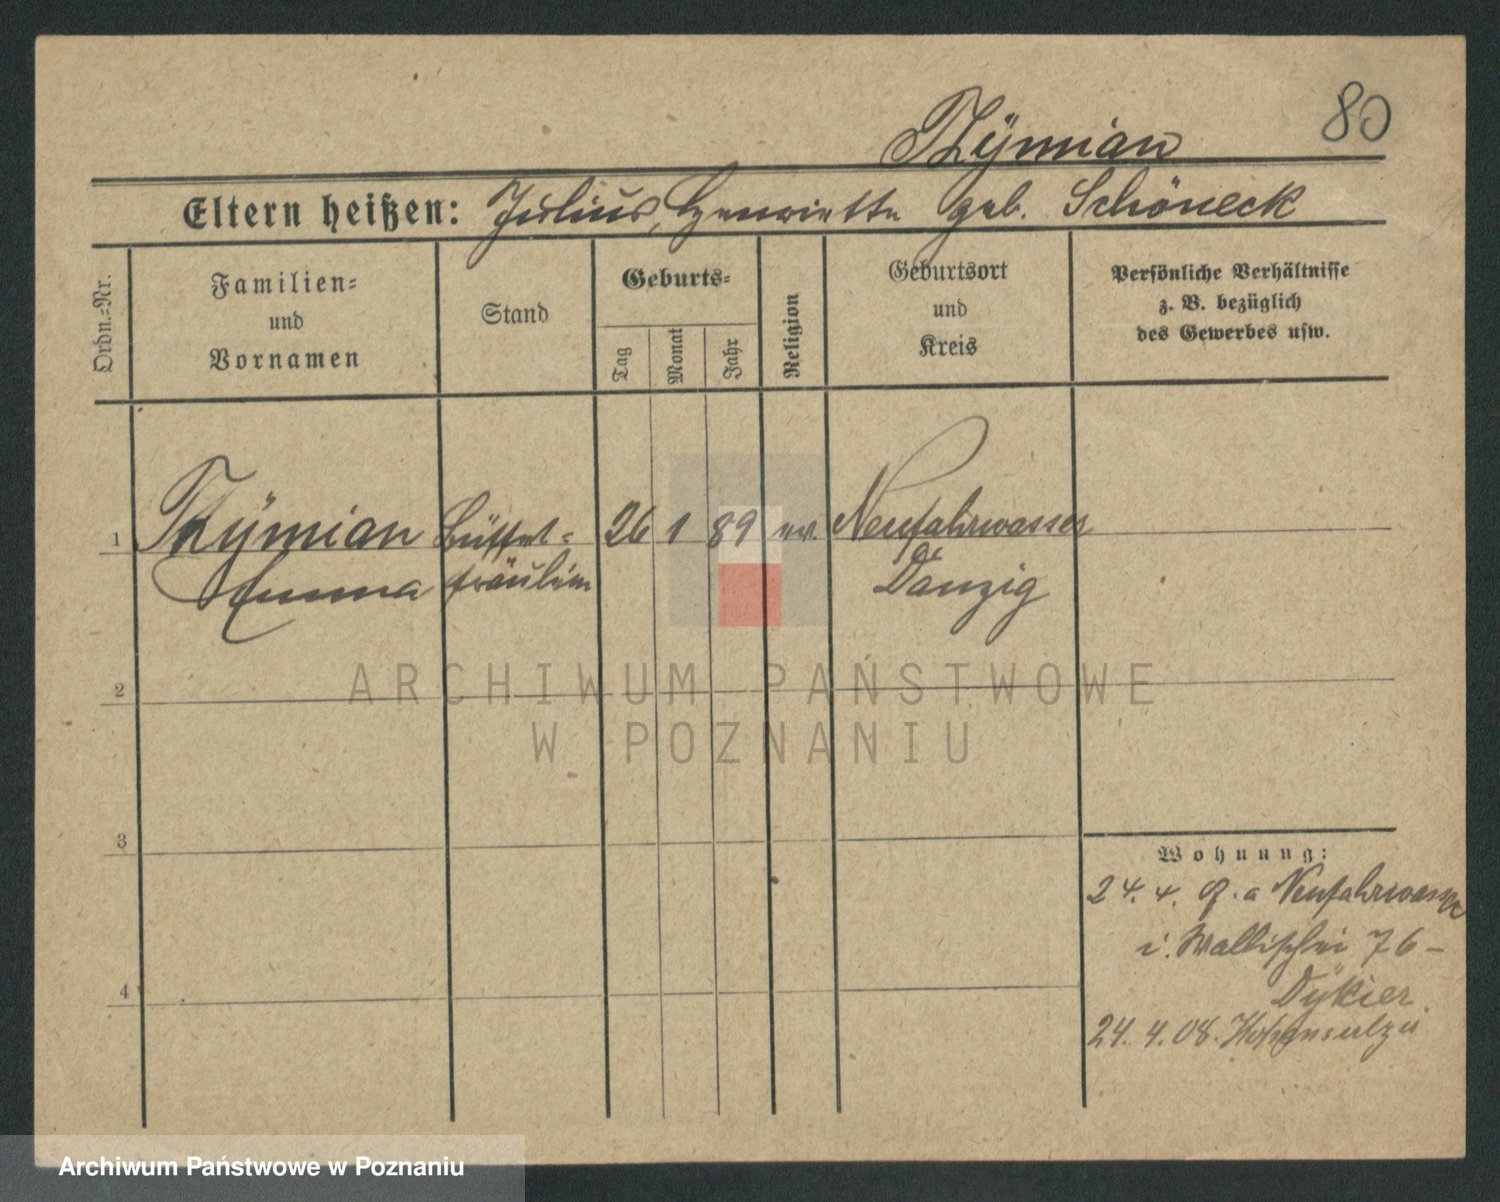 80
Thÿmian
Eltern heißen: Julius, Henriette geb. Schöneck
Ordn.-Nr.
Familien-
und
Vornamen
Stand
Geburts-
Tag
Monat
Jahr
Religion
Geburtsort
und
Kreis
Persönliche Verhältnisse
z. B. bezüglich
des Gewerbes usw.
1 Thÿmian Büffet- 26 1 89 ev. Neufahrwasser
Emma fräulein Danzig
2
3
4
Wohnung:
24. 4. a Neufahrwasser
i. Wallischei 76-
Dÿkier
24. 4. 08. Hohensalza
ARCHIWUM PAŃSTWOWE
W POZNANIU
Archiwum Państwowe w Poznaniu